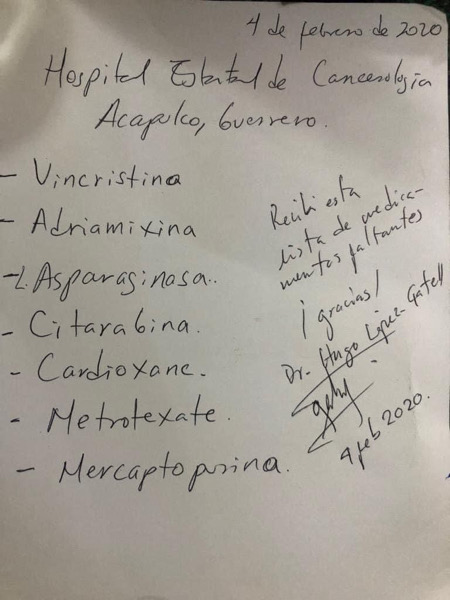 4 de febrero de 2020
Hospital Estatal de Cancerología
Acapulco, Guerrero.
- Vincristina
- Adriamixina
- L. Asparaginasa..
- Citarabina.
- Cardioxane.
- Metrotexate.
- Mercaptopurina.
Recibí esta
lista de medica-
mentos faltantes
¡gracias!
Dr. Hugo López-Gatell
4 feb 2020.